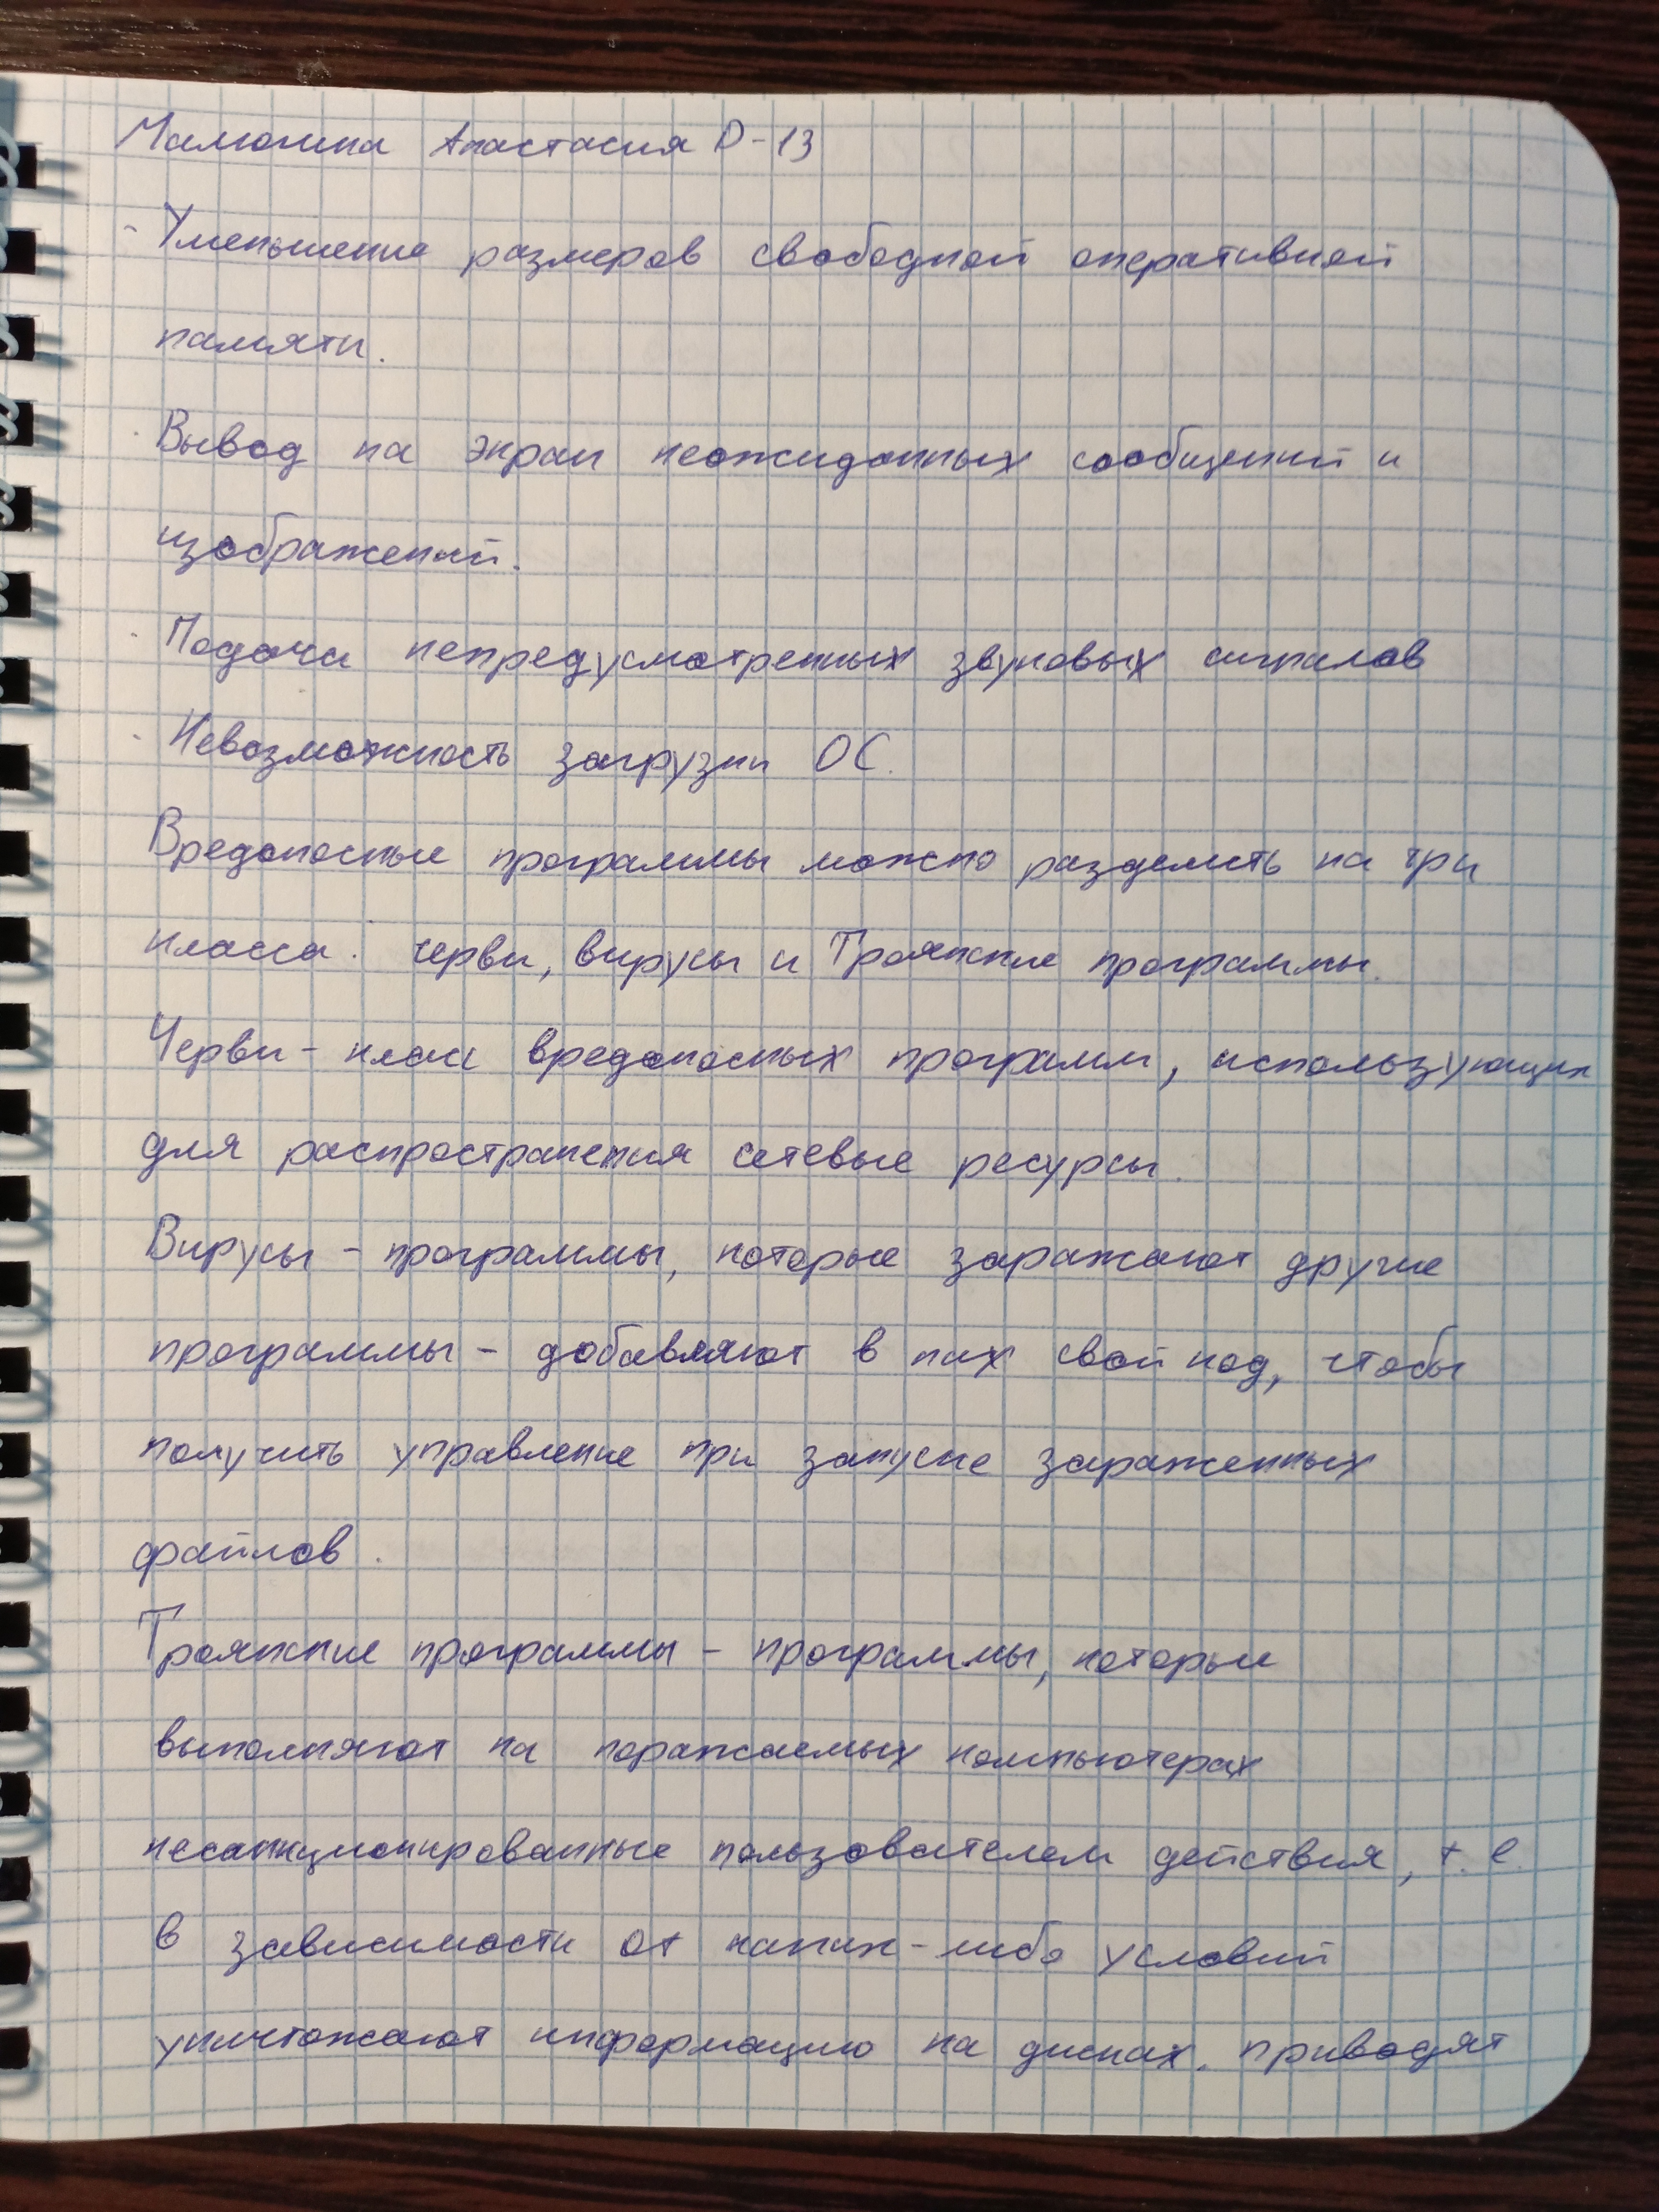 Анастасия D-13
- Уменьшение размеров свободной оперативной
памяти.
· Вывод на экран неожиданных сообщений и
изображений.
· Подача непредусмотренных звуковых сигналов
- Невозможность загрузки ОС.
Вредоносные программы можно разделить на три
класса: черви, вирусы и Троянские программы.
Черви - класс вредоносных программ, использующих
для распространения сетевые ресурсы.
Вирусы - программы, которые заражают другие
программы - добавляют в них свой код, чтобы
получить управление при запуске зараженных
файлов.
Троянские программы - программы, которые
выполняют на поражаемых компьютерах
несанкционированные пользователем действия, т.е.
в зависимости от каких-либо условий
уничтожают информацию на дисках, приводят